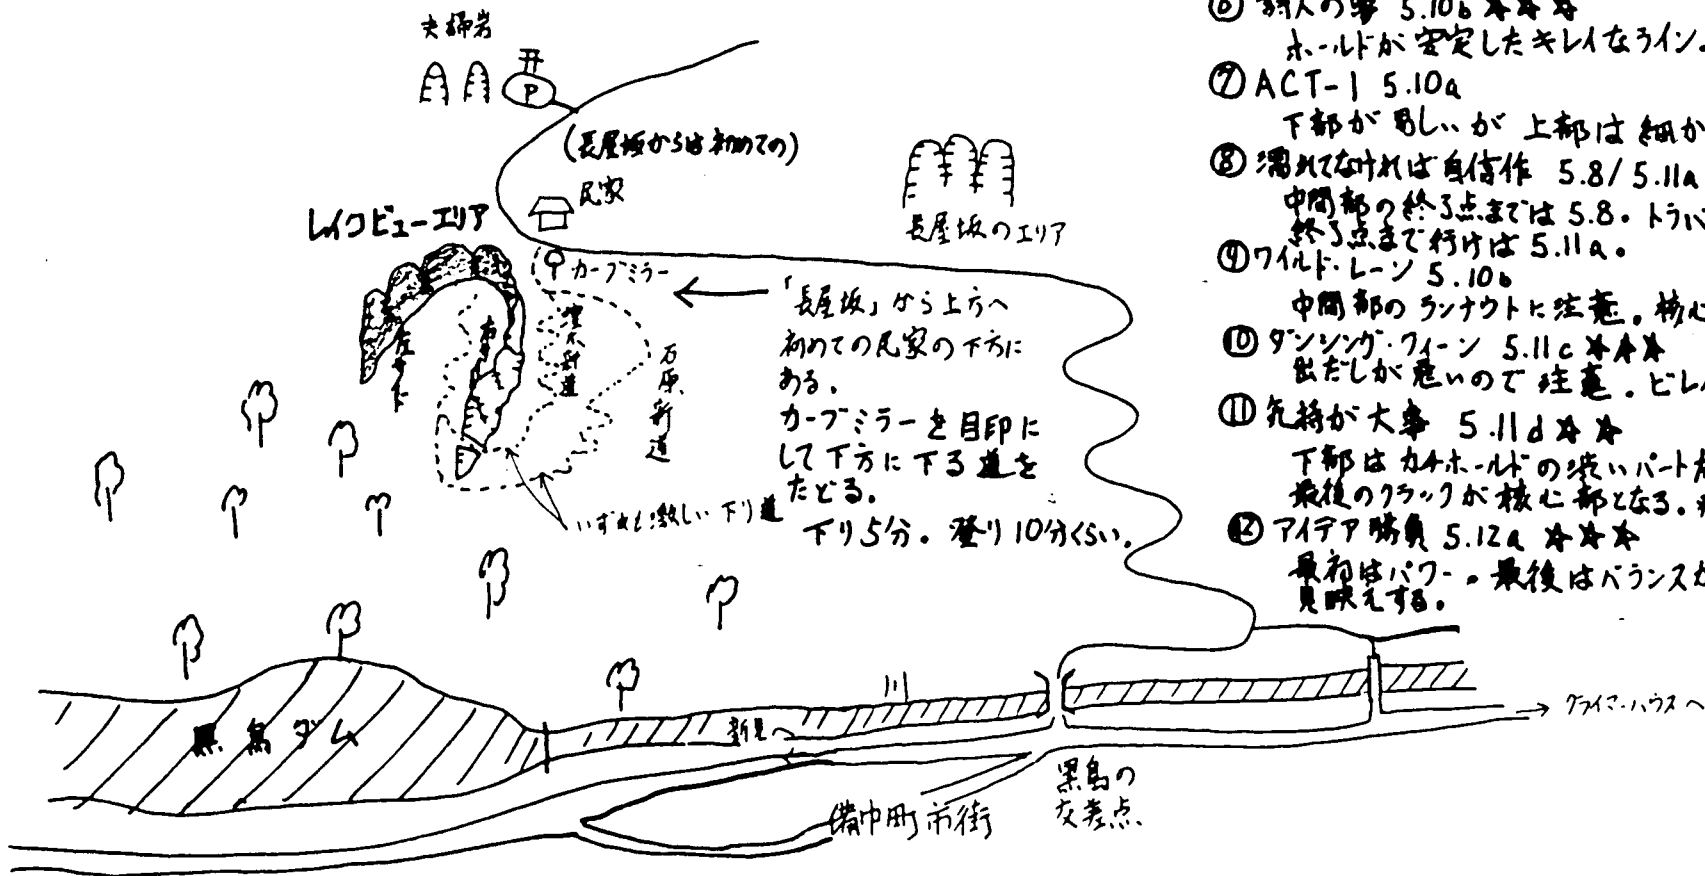 夫婦岩
P
(長屋坂からは初めての)
民家
レイクビューエリア
カーブミラー
長屋坂のエリア
左サイド
右サイド
新道
石原新道
「長屋坂」から上方へ
初めての民家の下方に
ある。
カーブミラーを目印に
して下方に下る道を
たどる。
下り5分。登り10分くらい。
いずれも激しい下り道
黒鳥ダム
新見へ
備中町市街
黒鳥の
交差点
クライマーハウスへ
⑥ 5.10b ☆☆☆
ホールドが安定したキレイなライン。
⑦ ACT-1 5.10a
下部が易しいが上部は細か
⑧ 濡れてなければ自信作 5.8/5.11a
中間部の終了点までは5.8。トラバ
終了点まで行けば5.11a。
⑨ ワイルド・レーン 5.10b
中間部のランナウトに注意。核心
⑩ ダンシング・クィーン 5.11c ☆☆☆
出だしが悪いので注意。ビレ
⑪ 気持が大事 5.11d ☆☆
下部はカチホールドの渋いパート
最後のクラックが核心部となる。
⑫ アイデア勝負 5.12a ☆☆☆
最初はパワー。最後はバランスが
見映えする。